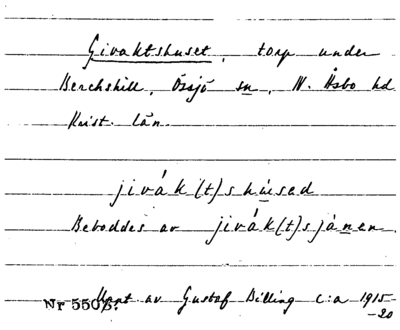 Givaktshuset, torp under
Berchshill, Össjö sn, N. Åsbo hd
Krist. län.
jivák(t)shúsed
Beboddes av jivák(t)sjánen.
av Gustaf Billing c:a 1915
-20
Nr 5503.